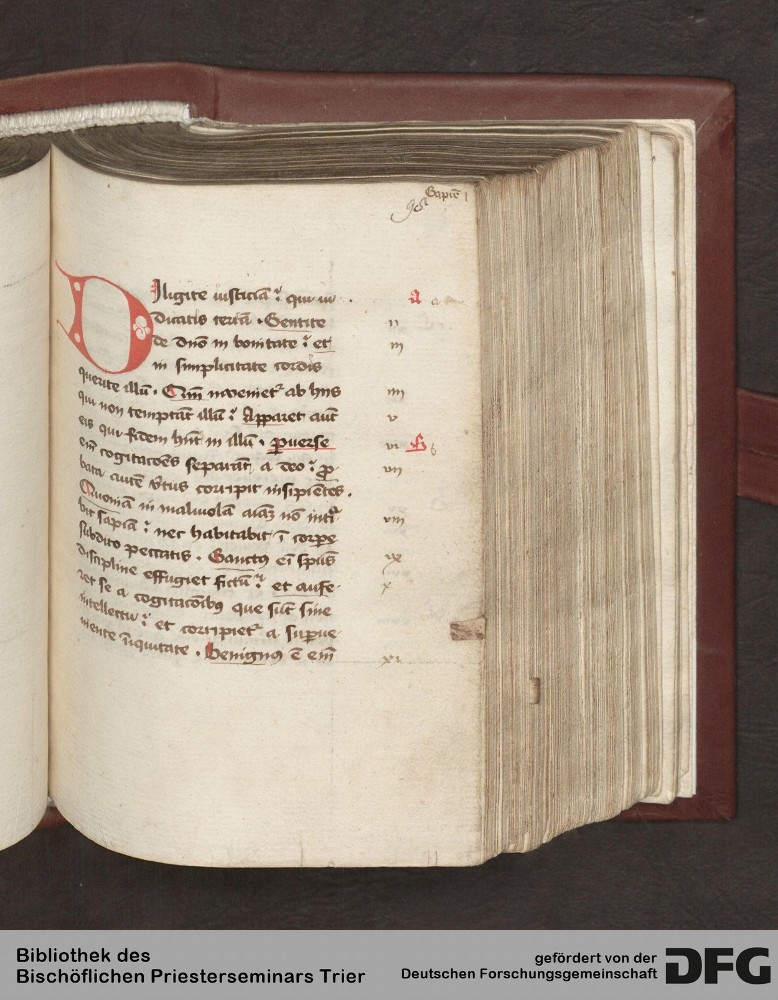 Sapīe 1
Diligite iusticiā : qui iu
dicatis terrā . Sentite
de dn̄o in bonitate : et
in simplicitate cordis
querite illū . Qm̄ inuenietᷣ ab hijs
qui non temptāt illū : Apparet aūt
eis qui fidem hn̄t in illū . ꝑuerse
em̄ cogitacōes separāt a deo : ꝓ
bata autē v̄tus corripit insipiētes .
Quoniā in maliuolā aiāȝ nō intᷣa
bit sapiā : nec habitabit ī corpe
subdito peccatis . Sanctꝯ ei spūs
discipline effugiet fictū : et aufe
ret se a cogitacōibꝫ que sūt sine
intellectu : et corripietᷣ a supue
niente īiquitate . Benignꝯ ē em̄
A
ii
iii
iiii
v
vi
vii
viii
ix
x
xi
Bibliothek des
Bischöflichen Priesterseminars Trier
gefördert von der
Deutschen Forschungsgemeinschaft
DFG